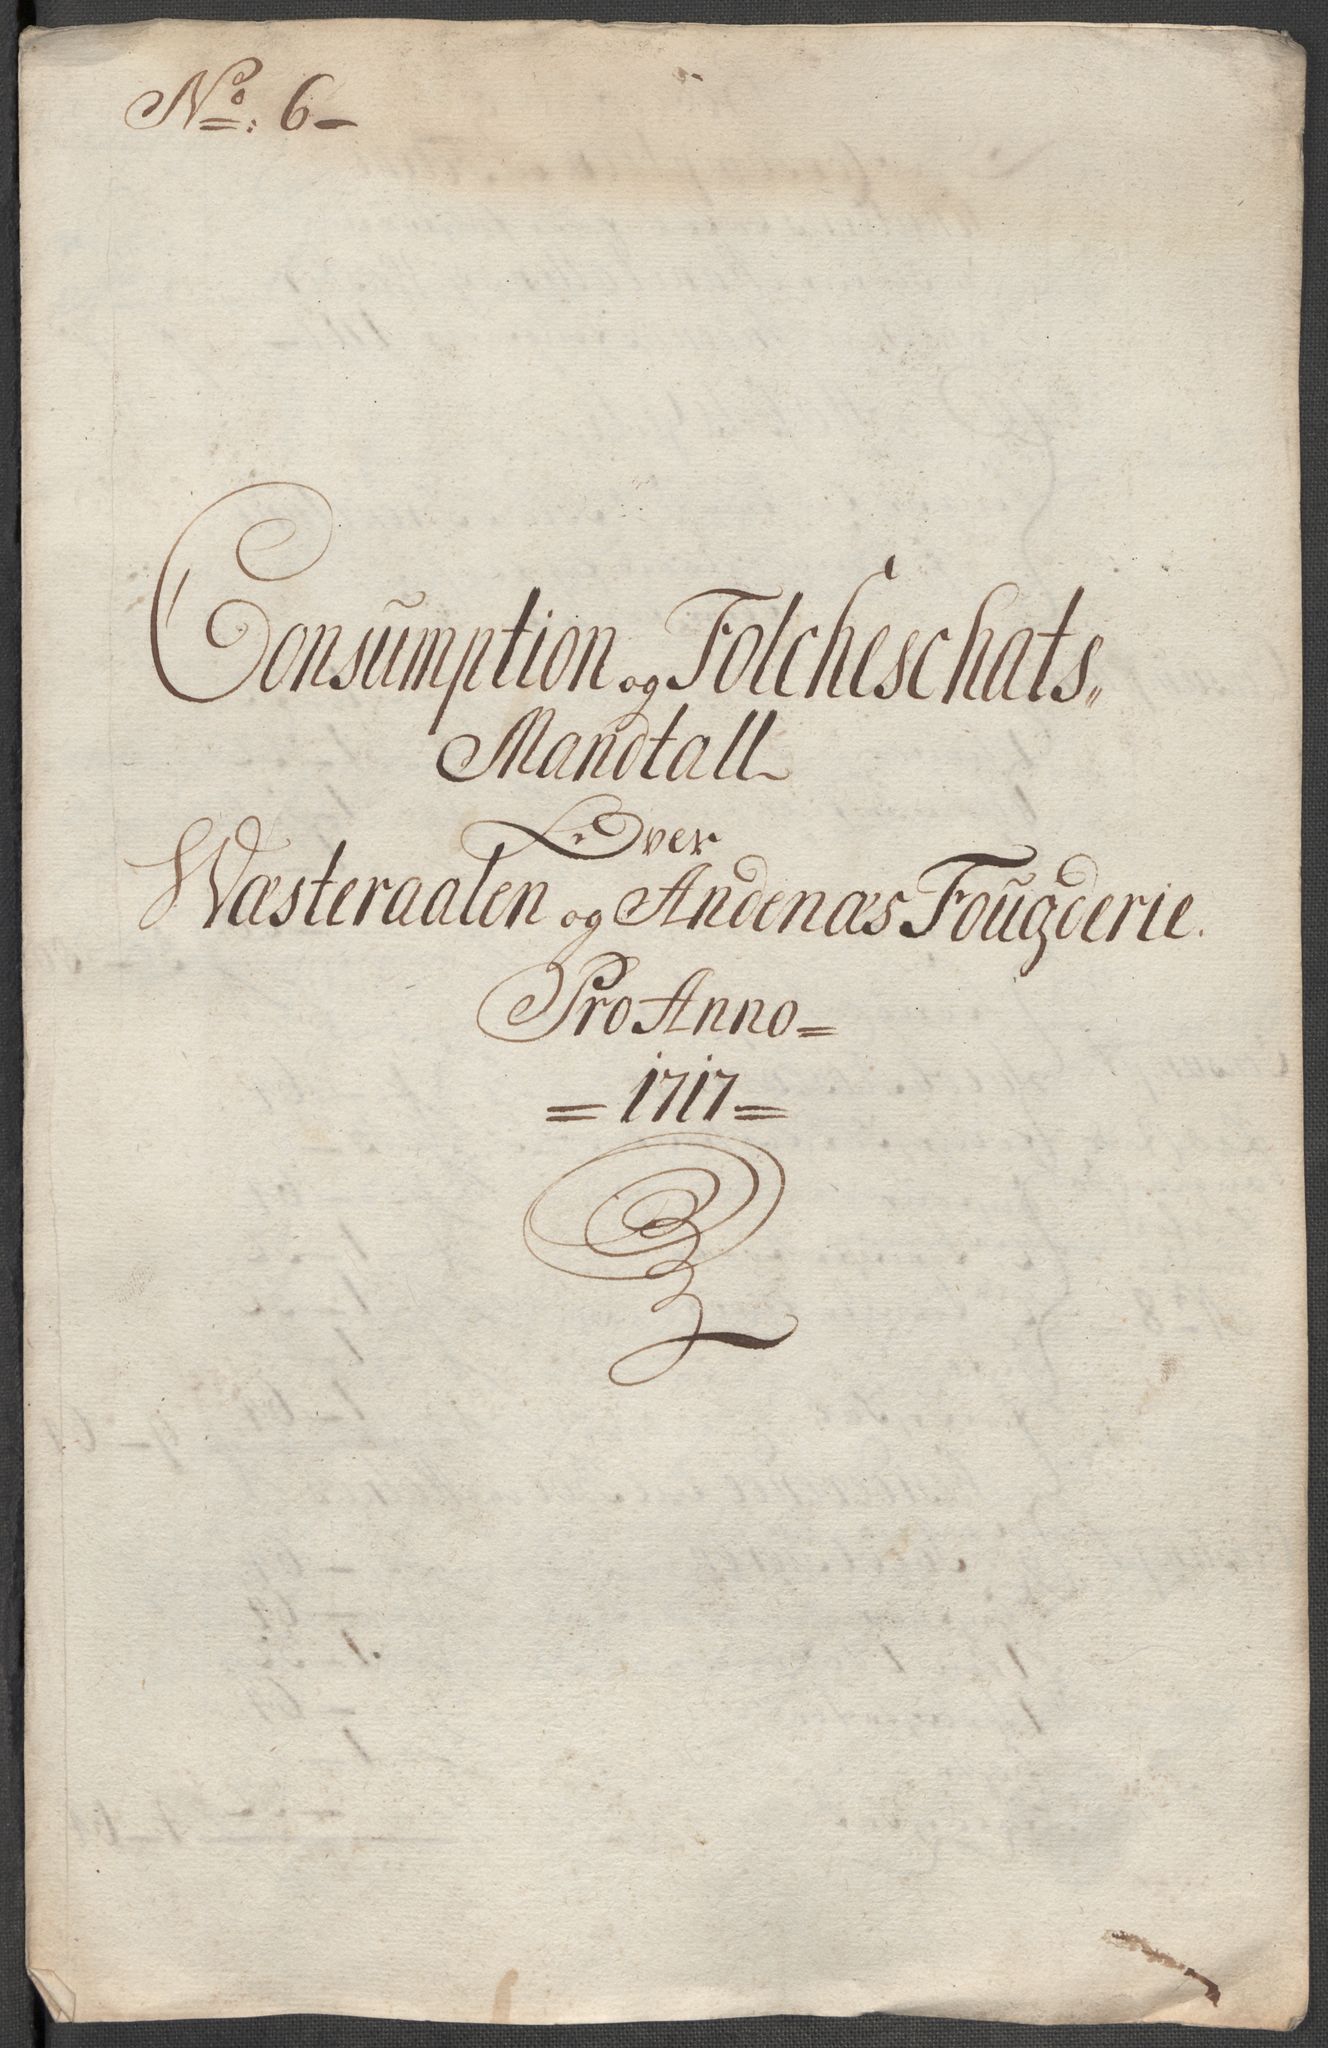 No: 6-
Consumption og Folcheschats,,
Mandtall
Over
Wæsteraalen og Andenæs Fougderie.
Pro Anno=
=1717=